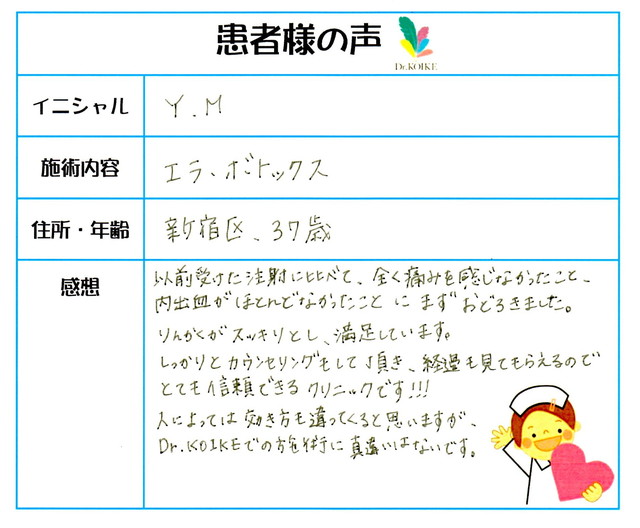 患者様の声
Dr.KOIKE
イニシャル Y.M
施術内容 エラ、ボトックス
住所・年齢 新宿区、37歳
感想
以前受けた注射に比べて、全く痛みを感じなかったこと、
内出血がほとんどなかったこと に まず おどろきました。
りんかくがスッキリとし、満足しています。
しっかりと カウンセリングもして頂き、経過も見てもらえるので
とても信頼できる クリニックです!!!
人によっては効き方も違ってくると思いますが、
Dr.KOIKEでの施術に 間違いはないです。